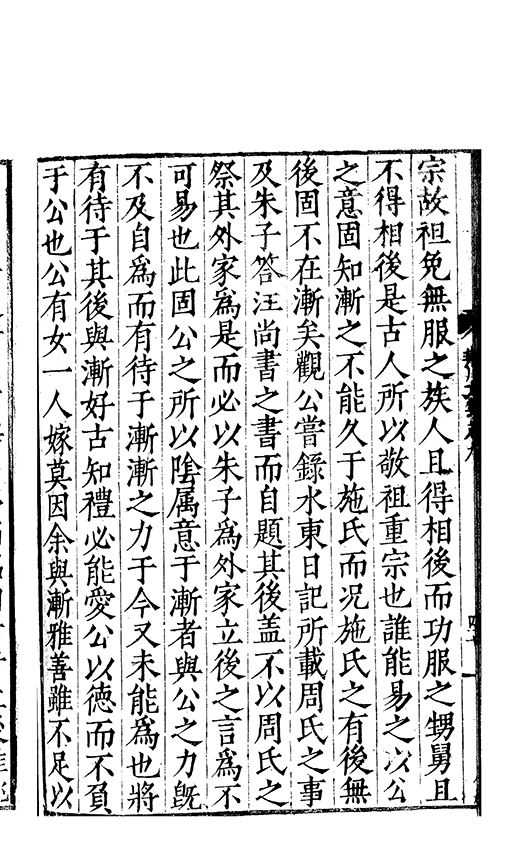 宗故袒免無服之族人且得相後而功服之甥舅且
不得相後是古人所以敬祖重宗也誰能易之以公
之意固知漸之不能久于施氏而况施氏之有後無
後固不在漸矣觀公嘗錄水東日記所載周氏之事
及朱子答汪尚書之書而自題其後盖不以周氏之
祭其外家爲是而必以朱子爲外家立後之言爲不
可易也此固公之所以陰属意于漸者與公之力旣
不及自爲而有待于漸漸之力于今又未能爲也將
有待于其後與漸好古知禮必能愛公以德而不負
于公也公有女一人嫁莫因余與漸雅善雖不足以